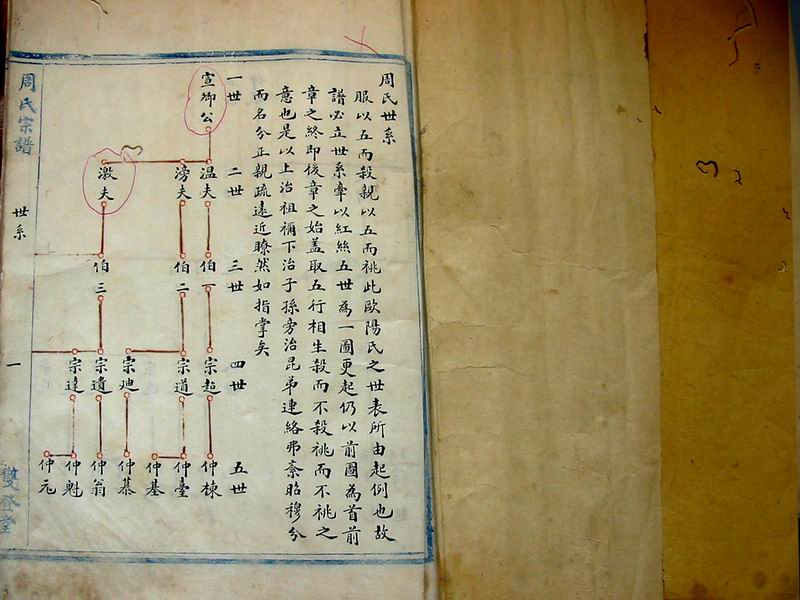 周氏世系
服以五而殺親以五而祧此歐陽氏之世表所由起例也故
譜必立世系牽以紅絲五世為一圖更起仍以前圖為首前
章之終即後章之始盖取五行相生殺而不殺祧而不祧之
意也是以上治祖禰下治子孫旁治昆弟連絡弗紊昭穆分
而名分正親疏遠近瞭然如指掌矣
一世
宣御公
二世
温夫
滂夫
激夫
三世
伯一
伯二
伯三
四世
宗超
宗道
宗迪
宗遺
宗達
五世
仲棟
仲臺
仲基
仲慕
仲翁
仲魁
仲元
周氏宗譜
世系
一
雙登堂